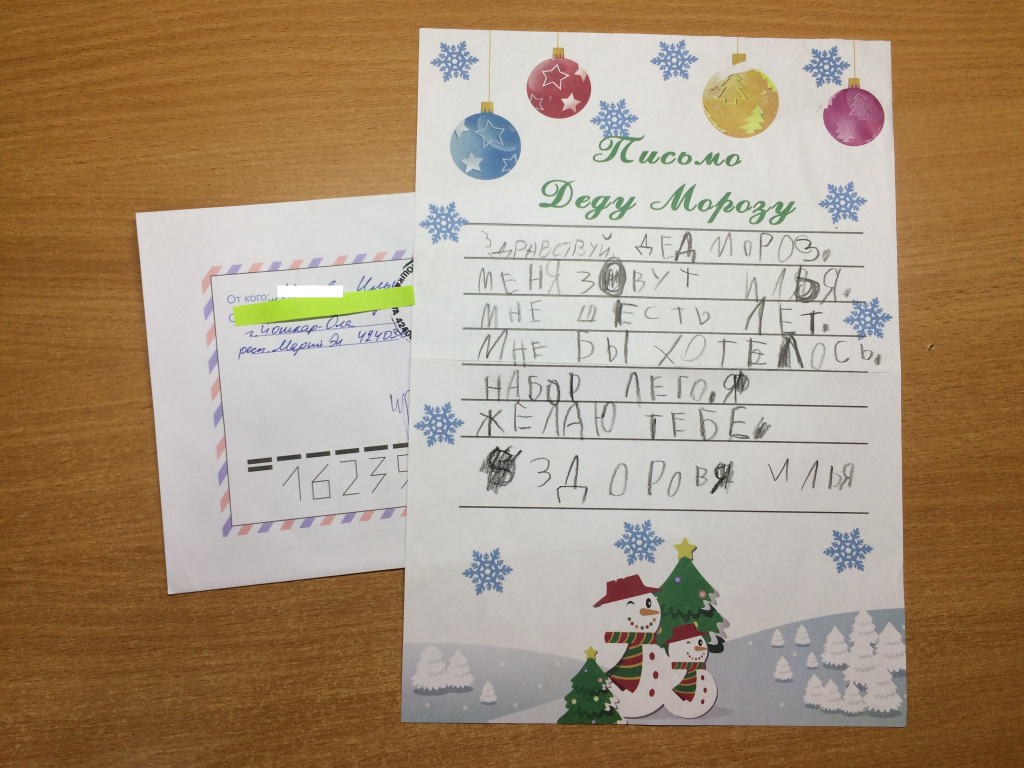 Письмо
Деду Морозу
ЗДРАВСТВУЙ ДЕД МОРОЗ.
МЕНЯ ЗОВУТ ИЛЬЯ.
МНЕ ШЕСТЬ ЛЕТ.
МНЕ БЫ ХОТЕЛОСЬ.
НАБОР ЛЕГО.Я
ЖЕЛАЮ ТЕБЕ.
ЗДОРОВЯ ИЛЬЯ
От кого:
г. Йошкар-Ола
респ. Марий Эл
16239